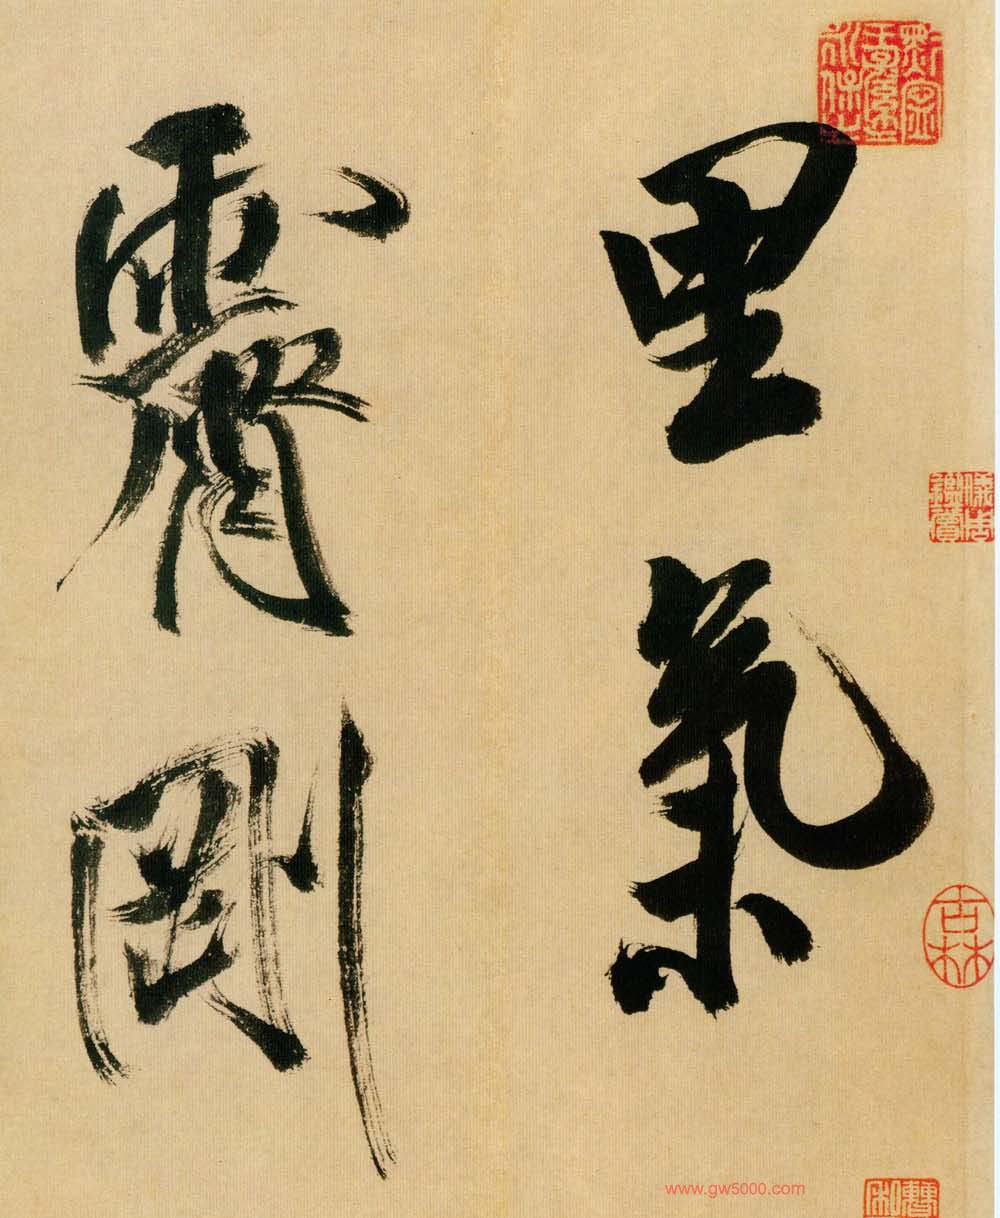 里氣
霽剛
古林
www.gw5000.com